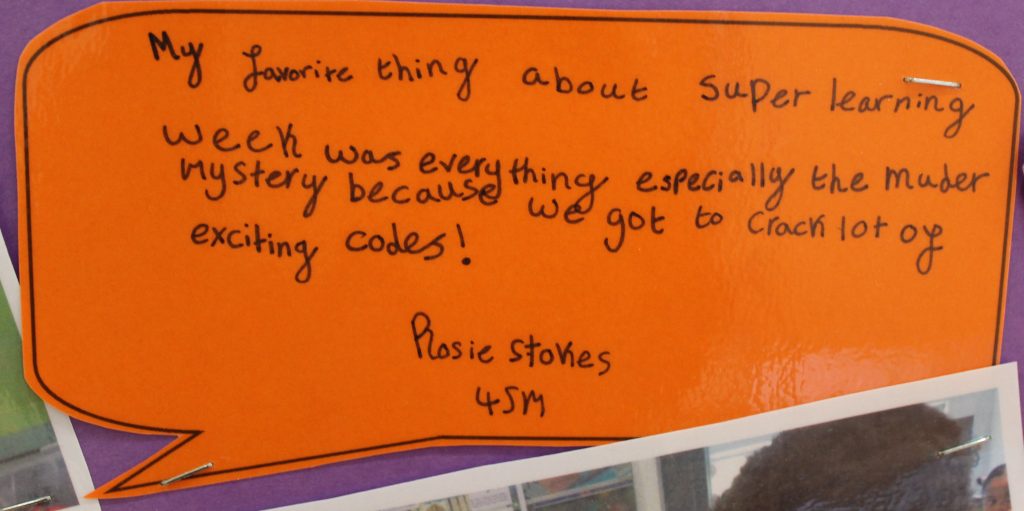 My favorite thing about super learning
week was everything especially the muder
mystery because we got to crack lot of
exciting codes!
Rosie Stokes
4SM